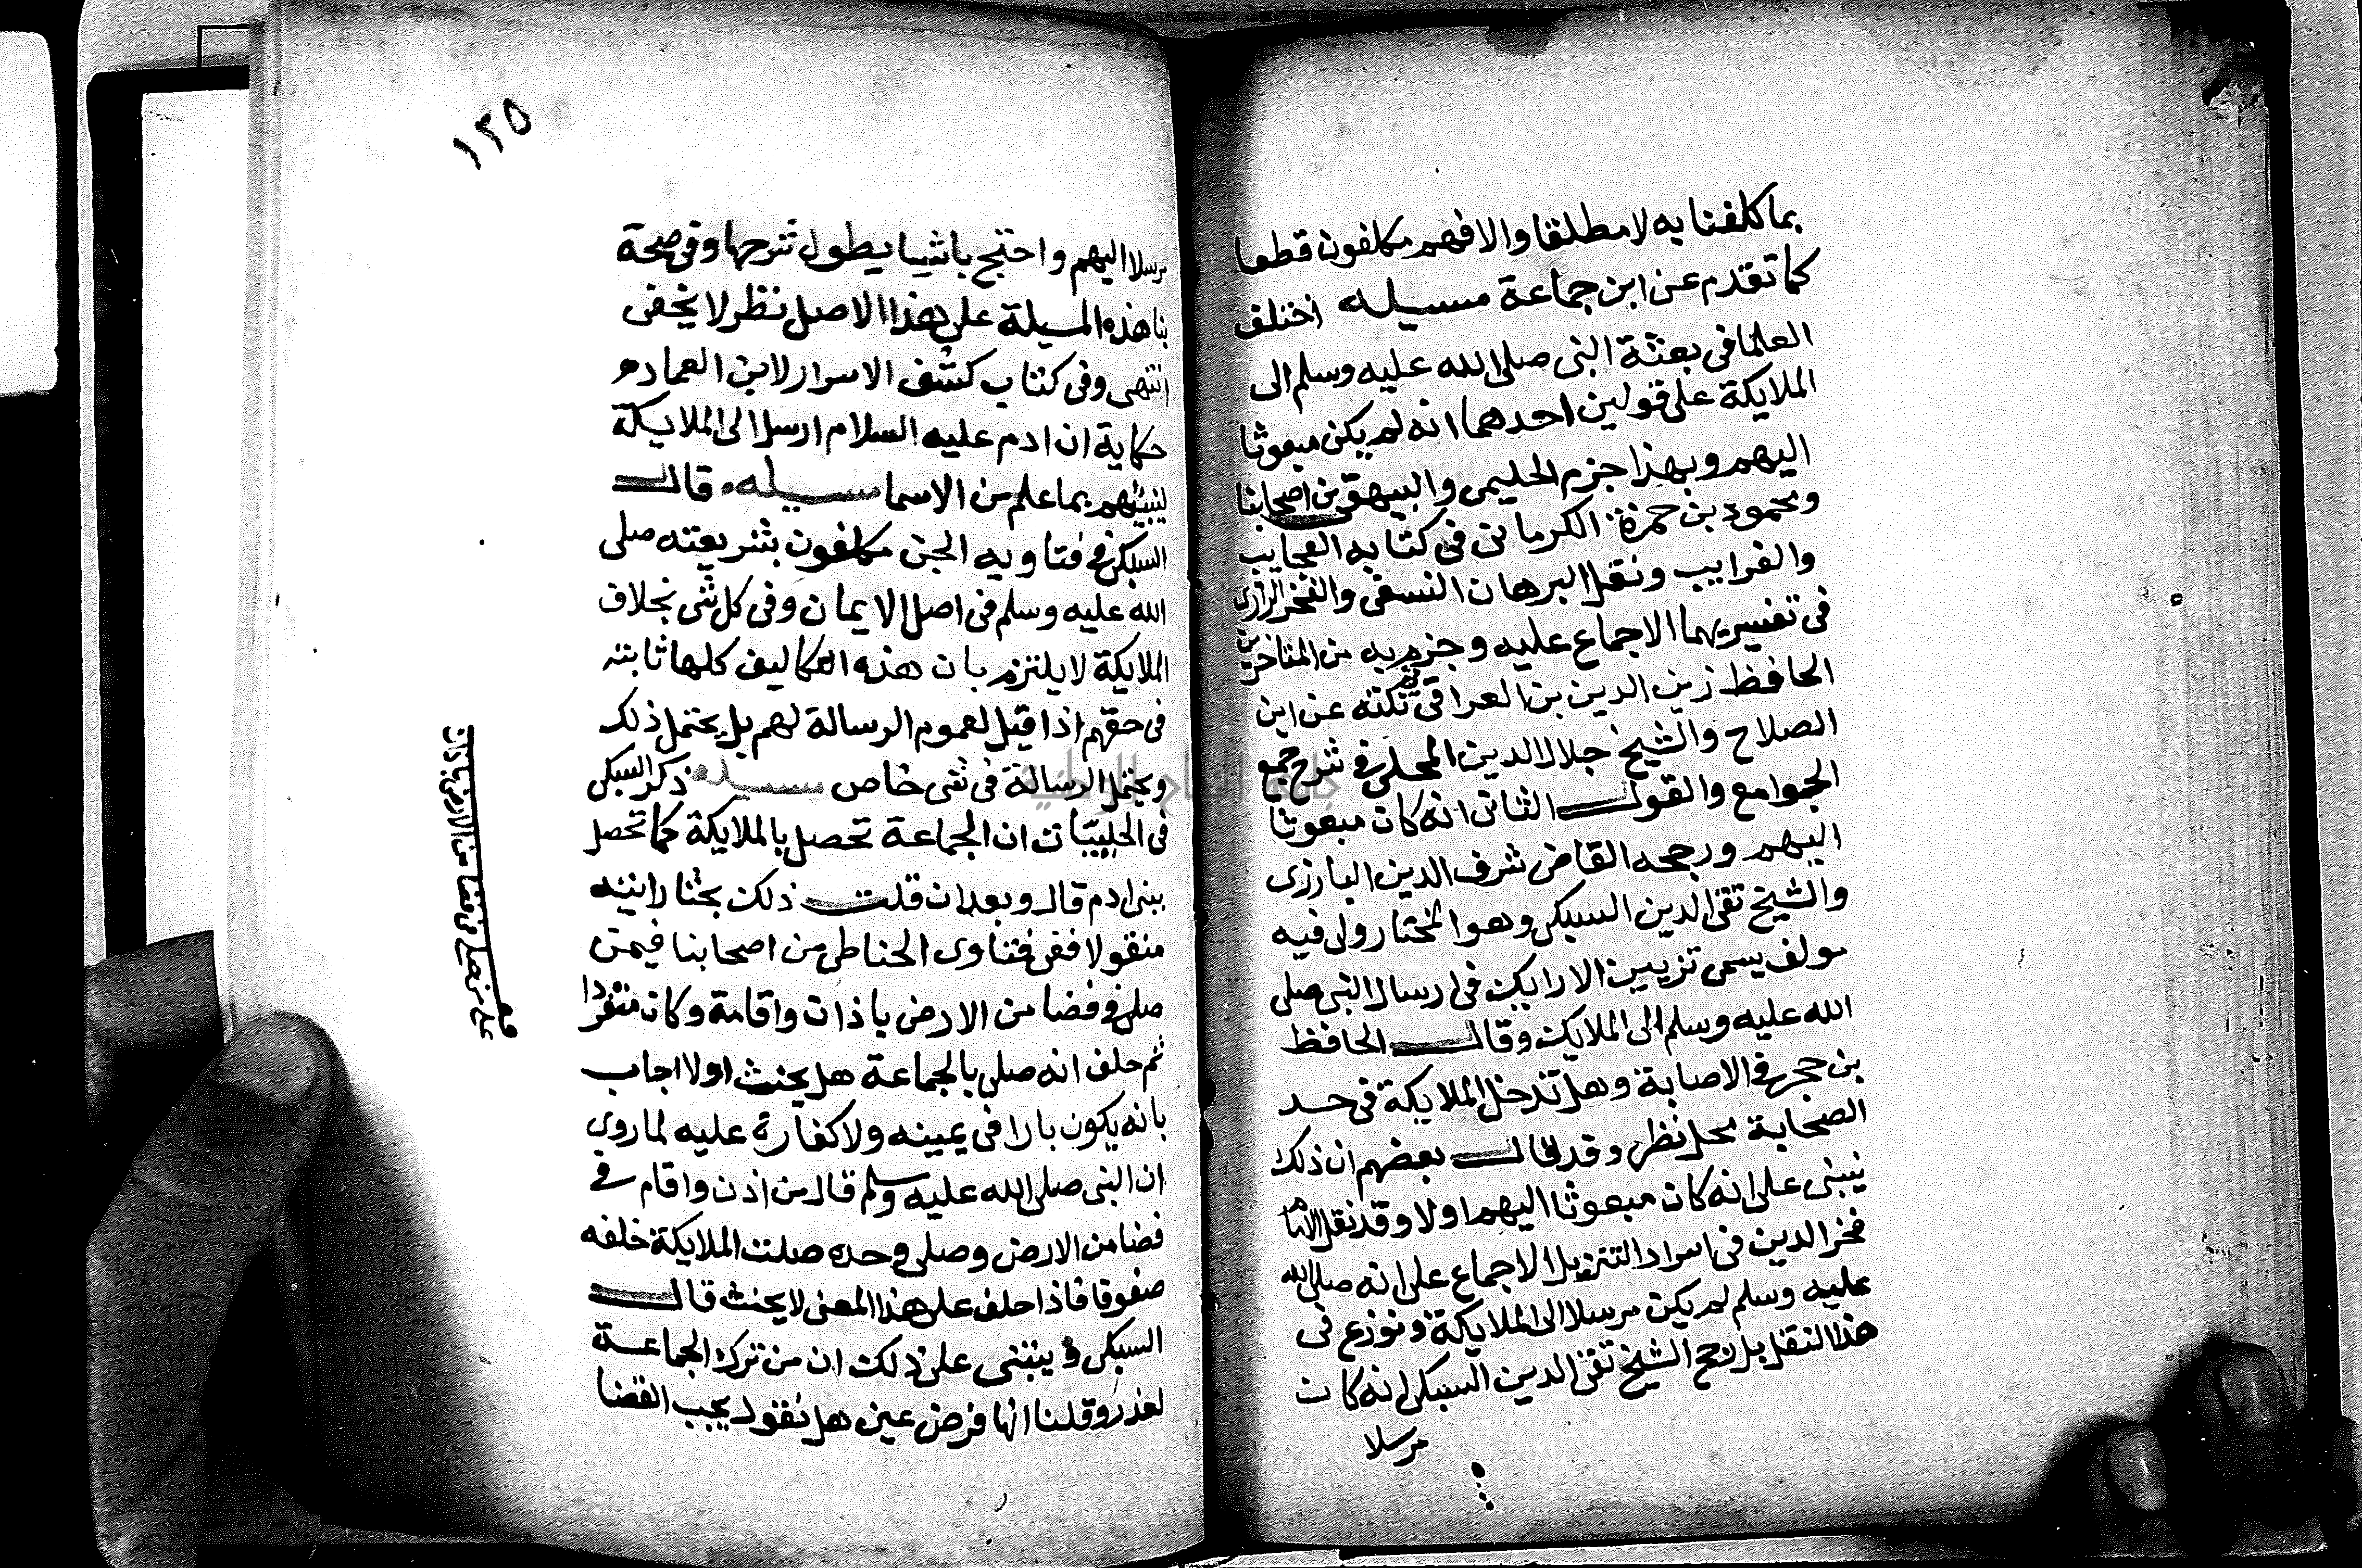 بما كلفنا به لا مطلقا والا فهم مكلفون قطعا
كما تقدم عن ابن جماعة مسيله اختلف
العلما في بعثة النبي صلى الله عليه وسلم الى
الملايكة على قولين احدهما انه لم يكن مبعوثا
اليهم وبهذا جزم الحليمي والبيهقي من اصحابنا
ومحمود بن حمزة الكرماني في كتابه العجايب
والغرايب ونقل البرهان النسفي والفخر الرازي
في تفسيريهما الاجماع عليه وجزم به من المتاخرين
الحافظ زين الدين بن العراقي في نكته عن ابن
الصلاح والشيخ جلال الدين المحلي في شرح جمع
الجوامع والقول الثاني انه كان مبعوثا
اليهم ورجحه القاضي شرف الدين البارزي
والشيخ تقي الدين السبكي وهو المختار ولي فيه
مولف يسمى تزيين الارايك في ارسال النبي صلى
الله عليه وسلم الى الملايك وقال الحافظ
بن حجر في الاصابة وهل تدخل الملايكة في حد
الصحابة محل نظر وقد قال بعضهم ان ذلك
ينبني على انه كان مبعوثا اليهم اولا وقد نقل الامام
فخر الدين في اسرار التنزيل الاجماع على انه صلى الله
عليه وسلم لم يكن مرسلا الى الملايكة ونوزع في
هذا النقل بل رجح الشيخ تقي الدين السبكي انه كان
مرسلا
١٢٥
مرسلا اليهم واحتج باشيا يطول شرحها وفي صحة
بنا هذه المسيلة على هذا الاصل نظر لا يخفى
انتهى وفي كتاب كشف الاسرار لابن العماد
حكاية ان ادم عليه السلام ارسل الى الملايكة
لينبيهم بما علم من الاسما مسيله قال
السبكي في فتاويه الجن مكلفون بشريعته صلى
الله عليه وسلم في اصل الايمان وفي كل شي بخلاف
الملايكة لا يلتزم بان هذه التكاليف كلها ثابته
في حقهم اذا قيل لعموم الرسالة لهم بل يحتمل ذلك
ويحتمل الرسالة في شي خاص مسيله ذكر السبكي
في الحلبيات ان الجماعة تحصل بالملايكة كما تحصل
ببني ادم قال وبعد ان قلت ذلك بحثا رايته
منقولا ففي فتاوى الحناطي من اصحابنا فيمن
صلى في فضا من الارض باذان واقامة وكان منفردا
ثم حلف انه صلى بالجماعة هل يحنث اولا اجاب
بانه يكون بارا في يمينه ولا كفارة عليه لما روي
ان النبي صلى الله عليه وسلم قال من اذن واقام في
فضا من الارض وصلى وحده صلت الملايكة خلفه
صفوفا فاذا حلف على هذا المعنى لا يحنث قال
السبكي وينبني على ذلك ان من ترك الجماعة
لعذر وقلنا انها فرض عين هل نقول يجب القضا